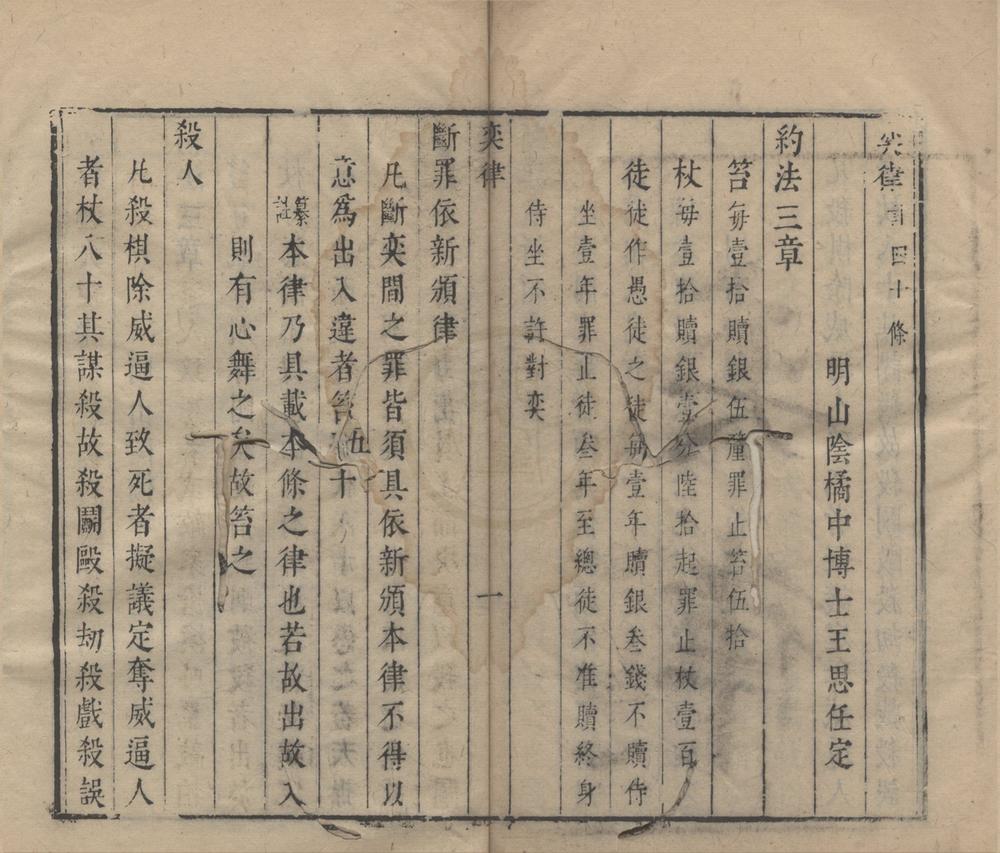 奕律 四十條
明山陰橘中博士王思任定
約法三章
笞 每壹拾贖銀伍釐罪止笞伍拾
杖 每壹拾贖銀壹分陸拾起罪止杖壹百
徒 徒作愚徒之徒每壹年贖銀叁錢不贖侍
坐壹年罪止徒叁年至總徒不准贖終身
侍坐不許對奕
奕律
一
斷罪依新頒律
凡斷奕間之罪皆須具依新頒本律不得以
意為出入違者笞五十
纂註 本律乃具載本條之律也若故出故入
則有心舞之矣故笞之
殺人
凡殺棋除威逼人致死者擬議定奪威逼人
者杖八十其謀殺故殺鬭毆殺劫殺戲殺誤